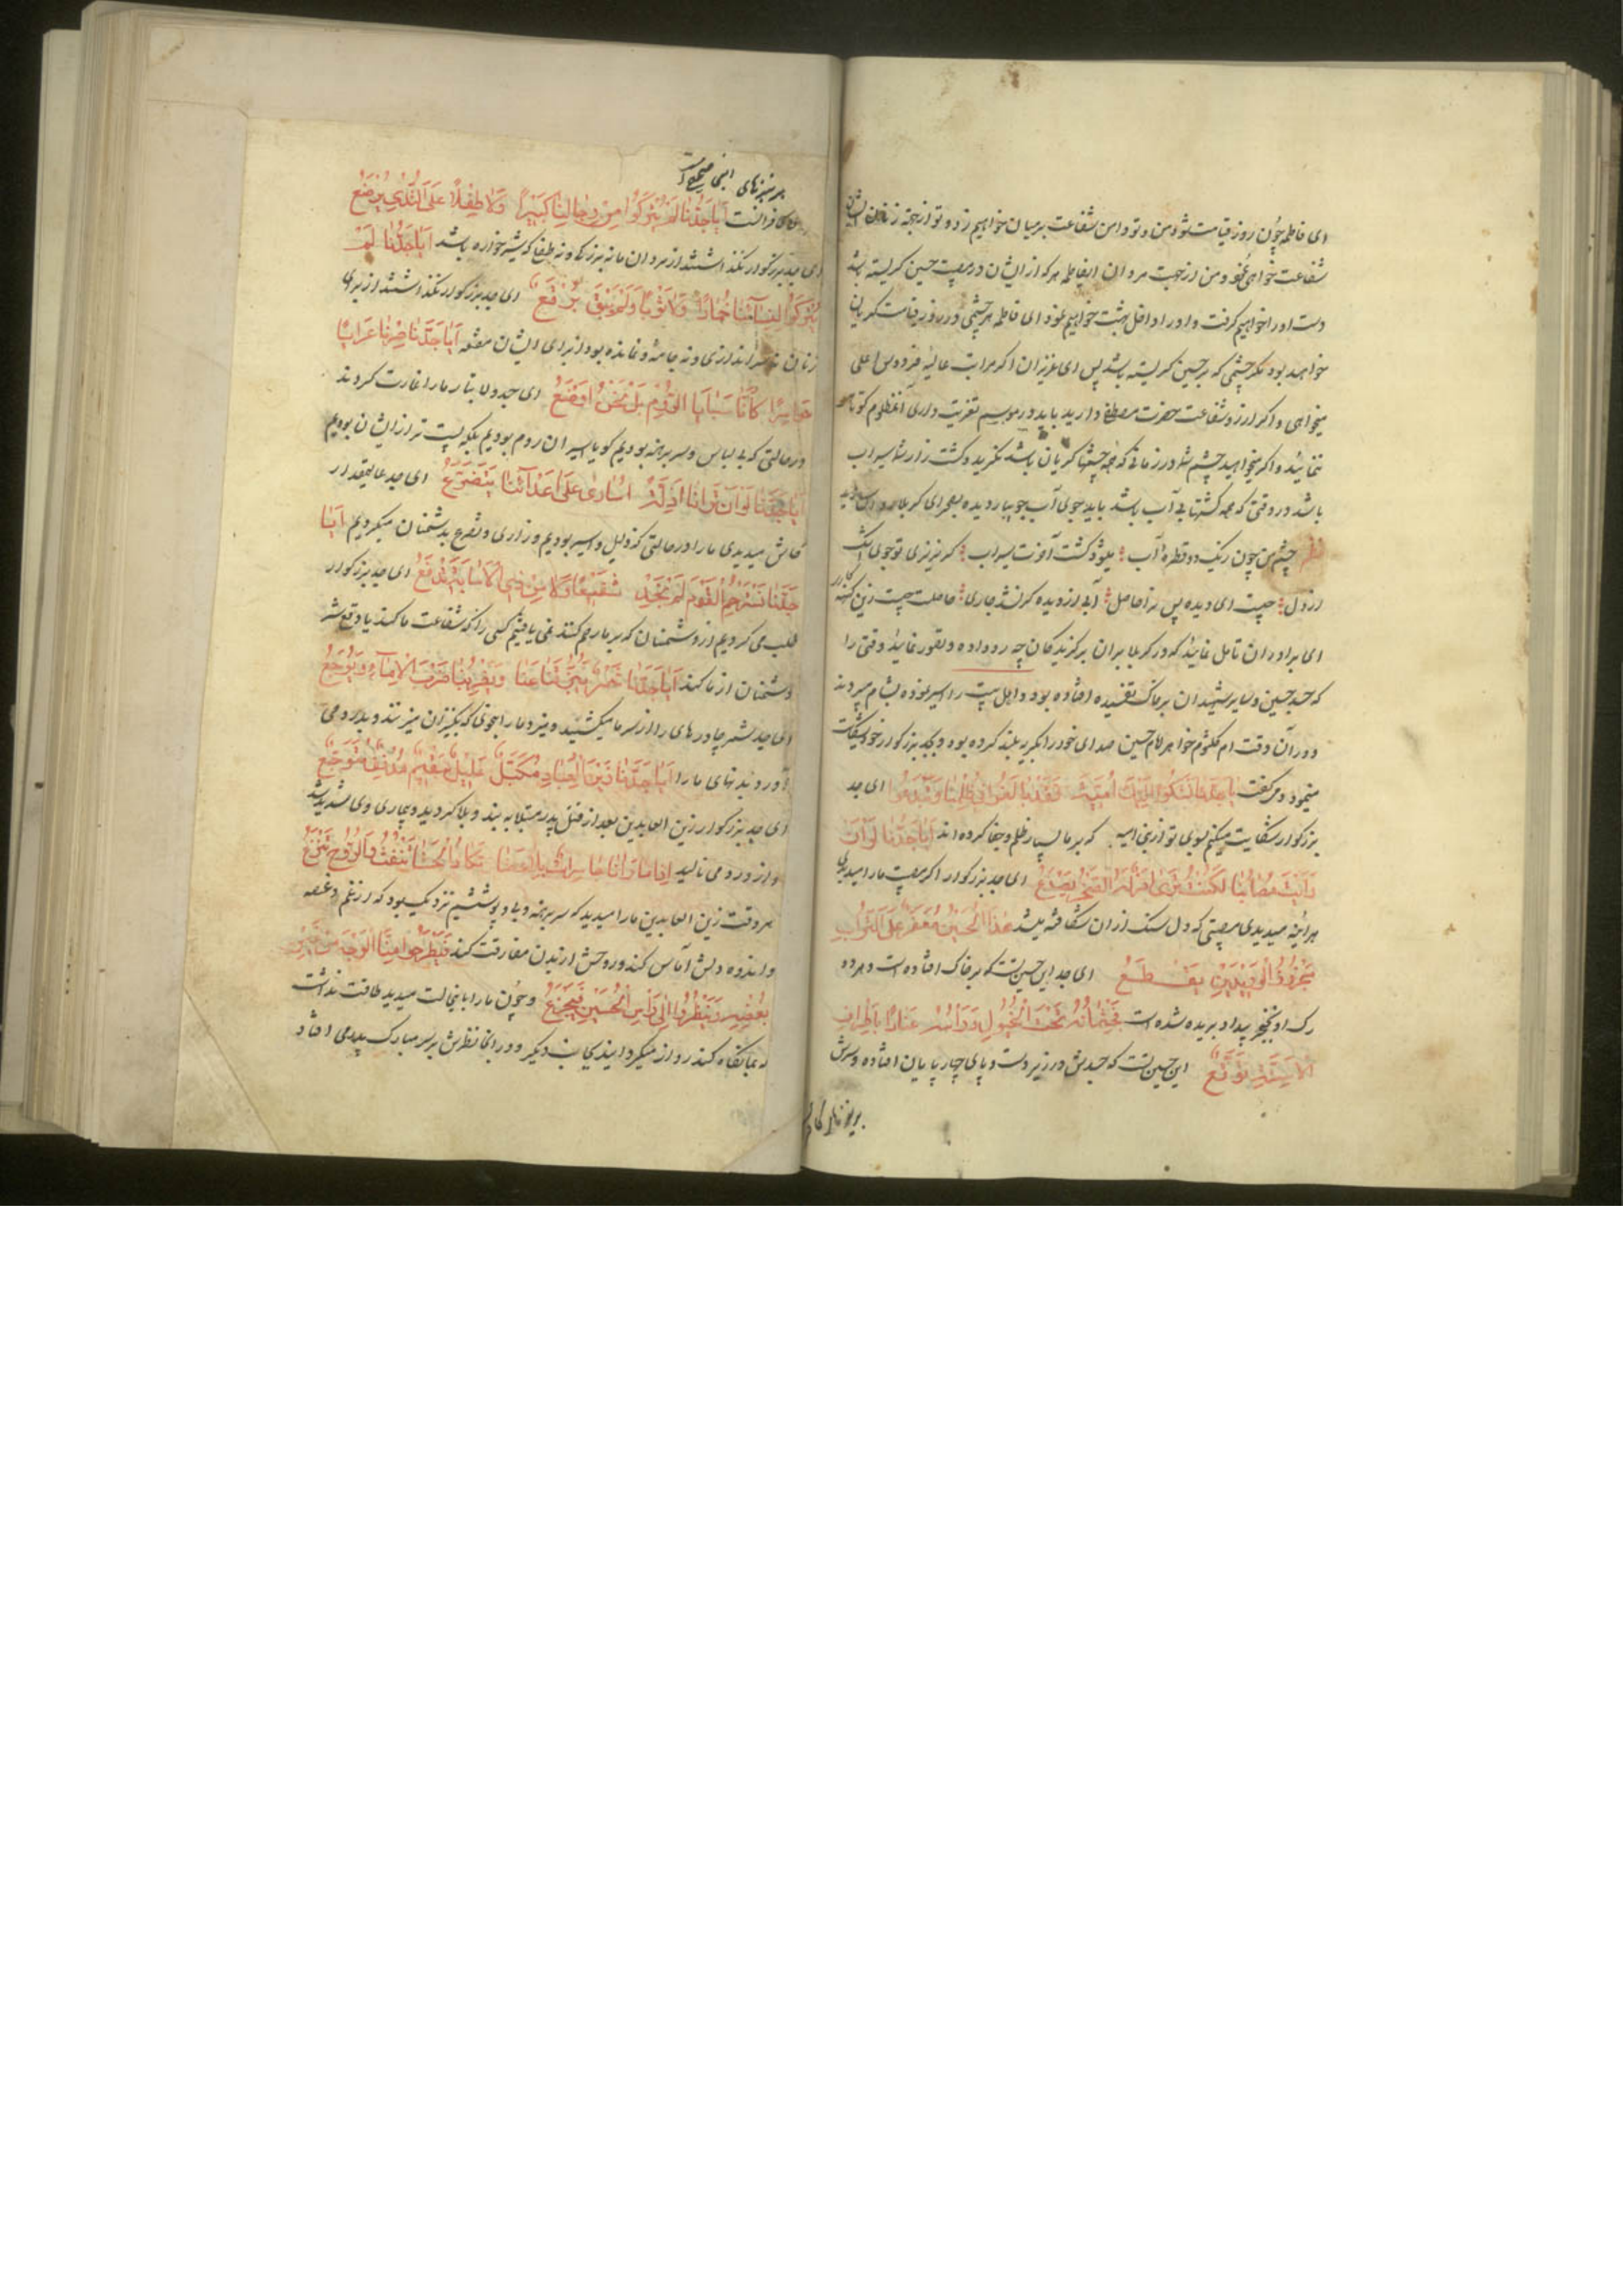 ای فاطمه چون روز قیامت شود من و تو دامن شفاعت بر میان خواهیم زد و تو از جهة زنان ایشان
شفاعت خواهی نمود و من از جهت مردان ایفاطمه هر که از ایشان در مصیبت حسین کریسته باشد
دست او را خواهیم کرفت و او را داخل بهشت خواهیم نمود ای فاطمه هر چشمی در روز قیامت کریان
خواهد بود مکر چشمی که بر حسین کریسته باشد پس ای عزیزان اکر مراتب عالیهٔ فردوس اعلی
میخواهی و اکر ارزوی شفاعت حضرت مصطفی دارید باید در موسم تعزیت داری آنمظلوم کوتاهی
ننمائید و اکر میخواهید چشم شما در زمانی که همه چشمها کریان باشد نکرید و کشت زار شما سیراب
باشد در وقتی که همه کشتها بی آب باشد باید جوی آب جویبار دیده بصحرای کربلا
نظم چشم من چون ریک دو قطرهٔ آب میشود کشت آخرت سیراب کر نریزی تو جوی اشک
از دل چیست ای دیده پس ترا حاصل آبی از دیده کر نشد جاری حاصلت چیست زین کنه
ای برادران تامل نمائید که در کربلا بران برکزیدکان چه رو داده و تصور نمائید وقتی را
که جسد حسین و سایر شهیدان بر خاک تفتیده افتاده بود و اهل بیت را اسیر نموده بشام میبردند
و در آن وقت ام کلثوم خواهر امام حسین صدای خود را بکریه بلند کرده بود و بجد بزرکوار خود شکایت
مینمود و میکفت ایا جدنا نشکوا الیک امیة فقد بالغوا فی ظلمنا وتبدعوا ای جد
بزرکوار شکایت میکنم بسوی تو از بنی امیه که بر ما بسیار ظلم و جفا کرده اند ایا جدنا لو ان
رایت مصابنا لکنت تری امرا له الصخر یصدع ای جد بزرکوار اکر مصیبت ما را میدیدی
هر آئینه میدیدی مصیبتی که دل سنک از ان شکافته میشد هذا الحسین معفر علی التراب
محزوز الوریدین یقطع ای جد این حسین تست که بر خاک افتاده است و هر دو
رک او بخنجر بیداد بریده شده است فجثمانه تحت الخیول وراسه عنادا باطراف
الاسنة ترفع این حسین تست که جسدش در زیر دست و پای چهار پایان افتاده و سرش
بر نیزهای
بر نیزهای اینی صحیح است
کافرانست ایا جدنا لم یترکوا من رجالنا کبیرا ولا طفلا علی الثدی یرضع
ای جد بزرکوار نکذاشتند از مردان ما نه بزرک و نه طفلی که شیر خواره باشد ایا جدنا لم
یترکوا لنسائنا خمارا ولا ثوبا ولم یبق برقع ای جد بزرکوار نکذاشتند از برای
زنان نه سر اندازی و نه جامهٔ و نمانده بود از برای ایشان مقنعه ایا جدنا صرنا عرایا
حواسرا کانا سبایا الروم بل نحن اوضع ای جد ولا تبار ما را غارت کردند
در حالتی که بی لباس و سر برهنه بودیم کویا اسیران روم بودیم بلکه پست تر از ایشان بودیم
ایا جدنا لو ان ترانا اذلة اساری علی اعدائنا یتضرع ای جد عالیمقدار
کاش میدیدی ما را در حالتی که ذلیل و اسیر بودیم و زاری و تضرع بدشمنان میکردیم ایا
جدنا نسترحم القوم لم نجد شفیعا ولا من ذی الاسایة یدفع ای جد بزرکوار
طلب می کردیم از دشمنان که بر ما رحم کنند نمی یافتیم کسی را که شفاعت ما کند یا دفع شر
دشمنان از ما کند ایا جدنا شمر یجر قناعنا ویضربنا ضرب الاماء ویوجع
ای جد شمر چادرهای را از سر ما میکشید و میزد ما را بنحوی که کنیزان میزنند و بدرد می
آورد بدنهای ما را ایا جدنا زین العباد مکبل علیل سقیم مدنف متوجع
ای جد بزرکوار زین العابدین بعد از قتل پدر مبتلا به بند و بلا کردید و بیماری وی شدید شد
و از درد می نالید اذا ما رانا حاسرات بلا وطا تکاد الحشا تنفث والروح تنزع
هر وقت زین العابدین ما را میدید که سر برهنه و بی پوششیم نزدیک بود که از غم و غصه
و اندوه دلش آماس کند و روحش از بدن مفارقت کند فیطرح منا الوجه من
بغضه وینظر الی راس الحسین فیجزع و چون ما را باینحالت میدید طاقت نداشت
که بما نکاه کند رو از ما میکردانید بجانب دیکر و در انجا نظرش بر سر مبارک پدر می افتاد